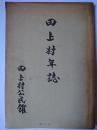 田上村年誌
田上村公民館